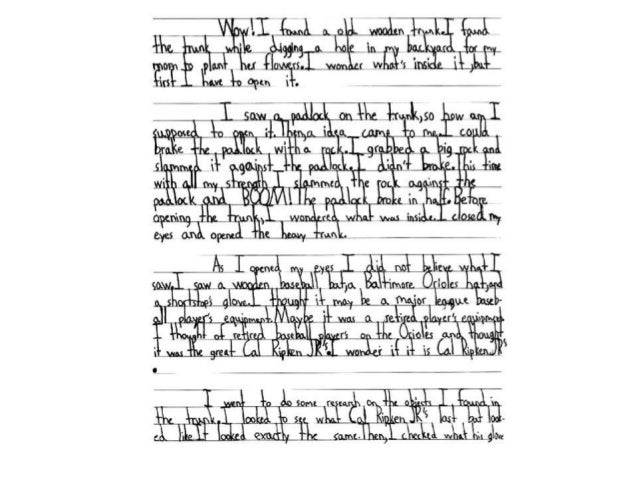 Wow! I found a old wooden trunk. I found
the trunk while digging a hole in my backyard for my
mom to plant her flowers. I wonder what's inside it, but
first I have to open it.
I saw a padlock on the trunk, so how am I
supposed to open it. Then, a idea came to me. I could
brake the padlock with a rock. I grabbed a big rock and
slammed it against the padlock. I didn't brake. This time
with all my strength I slammed the rock against the
padlock and BOOM! The padlock broke in half. Before
opening the trunk, I wondered what was inside. I closed my
eyes and opened the heavy trunk.
As I opened my eyes I did not believe what I
saw. I saw a wooden baseball bat, a Baltimore Orioles hat, and
a shortstop's glove. I thought it may be a major league baseb-
all player's equipment. Maybe it was a retired player's equipment
I thought of retired baseball players on the Orioles and thought
it was the great Cal Ripken JR's. I wonder if it is Cal Ripken JR's
.
I went to do some research on the objects I found in
the trunk. I looked to see what Cal Ripken JR's last bat look-
ed like. It looked exactly the same. Then, I checked what his glove